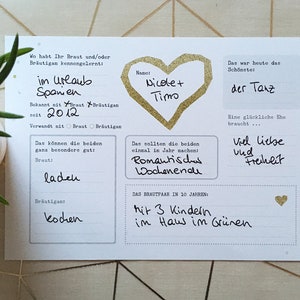 Wo habt Ihr Braut und/oder
Bräutigam kennengelernt:
im Urlaub
Spanien
Bekannt mit Braut Bräutigam
seit 2012
Verwandt mit Braut Bräutigam
Name:
Nicole +
Timo
Das war heute das
Schönste:
der Tanz
Eine glückliche Ehe
braucht ...
viel Liebe
und
Freiheit
Das können die beiden
ganz besonders gut:
Braut:
lachen
Bräutigam:
kochen
Das sollten die beiden
einmal im Jahr machen:
Romantisches
Wochenende
DAS BRAUTPAAR IN 10 JAHREN:
Mit 3 Kindern
im Haus im Grünen